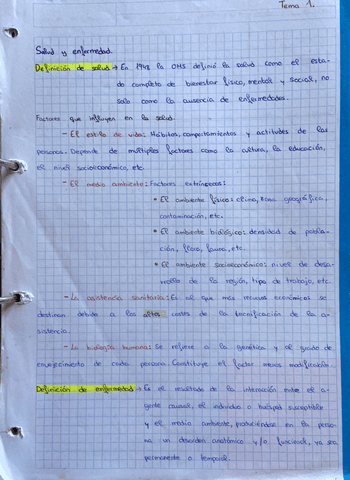 Tema 1.
Salud y enfermedad.
Definición de salud → En 1948 la OMS definió la salud como el esta-
do completo de bienestar físico, mental y social, no
solo como la ausencia de enfermedades.
Factores que influyen en la salud.
- El estilo de vida: Hábitos, comportamientos y actitudes de las
personas. Depende de múltiples factores como la cultura, la educación,
el nivel socioeconómico, etc.
- El medio ambiente: Factores extrínsecos:
• El ambiente físico: clima, zona geográfica,
contaminación, etc.
• El ambiente biológico: densidad de pobla-
ción, flora, fauna, etc.
• El ambiente socioeconómico: nivel de desa-
rrollo de la región, tipo de trabajo, etc.
- La asistencia sanitaria: Es al que más recursos económicos se
destinan debido a los altos costes de la tecnificación de la a-
sistencia.
- La biología humana: Se refiere a la genética y al grado de
envejecimiento de cada persona. Constituye el factor menos modificable.
Definición de enfermedad → Es el resultado de la interacción entre el a-
gente causal, el individuo o huésped susceptible
y el medio ambiente, produciéndose en la perso-
na un desorden anatómico y/o funcional, ya sea
permanente o temporal.